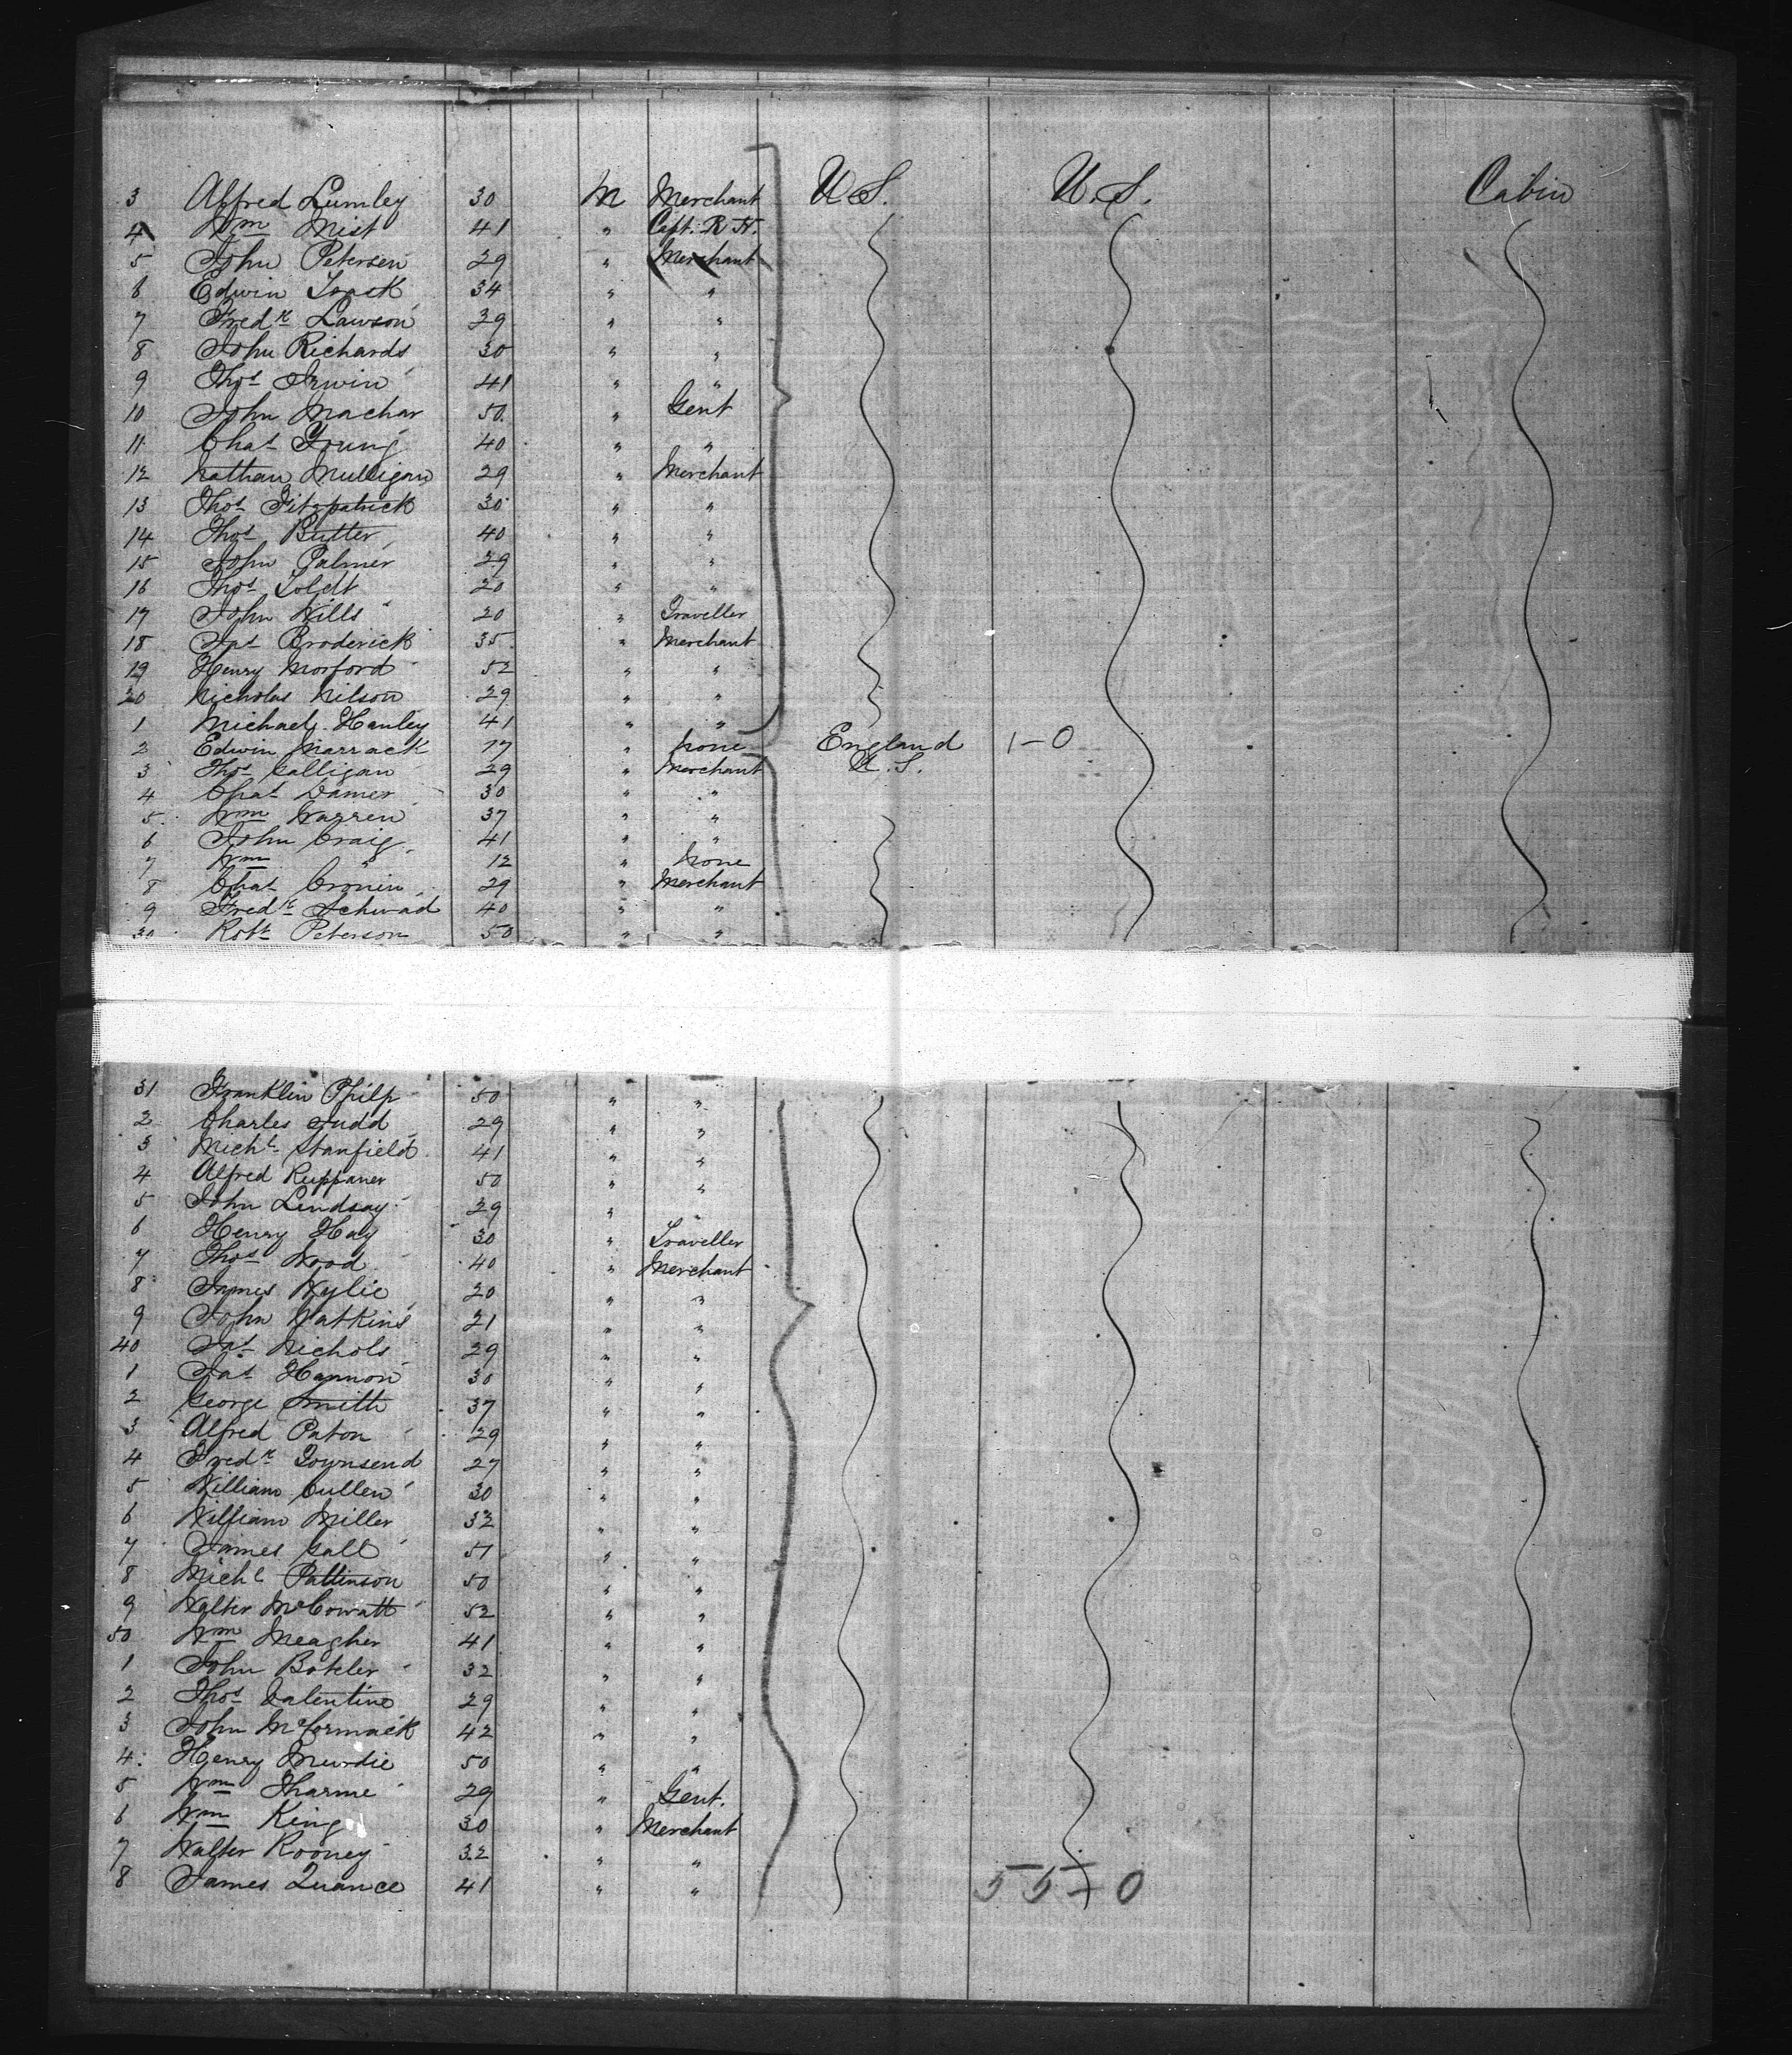 3 Alfred Lumley 30 M Merchant U.S. U.S. Cabin
4 Wm Mist 41 " Capt. R. N.
5 John Petersen 29 " Merchant
6 Edwin Trask 34 " "
7 Fredk Lawson 39 " "
8 John Richards 30 " "
9 Thos Irwin 41 " "
10 John Machar 50 " Gent
11 Chas Young 40 " "
12 Nathan Mulligan 29 " Merchant
13 Thos Fitzpatrick 30 " "
14 Thos Butter 40 " "
15 John Palmer 29 " "
16 Thos 20 " "
17 John Wills 20 " Traveller
18 Jas Broderick 35 " Merchant
19 Henry Morford 52 " "
20 Nicholas Nilson 29 " "
1 Michael Hanley 41 " "
2 Edwin Marrack 17 " None England 1-0
3 Thos Galligan 29 " Merchant U.S.
4 Chas Damer 30 " "
5 Wm Warren 37 " "
6 John Craig 41 " "
7 Wm " 12 " None
8 Chas Cronin 29 " Merchant
9 Fredk Schwad 40 " "
30 Robt Peterson 50 " "
31 Franklin Philp 50 " "
2 Charles Judd 29 " "
3 Michl Stanfield 41 " "
4 Alfred Ruppaner 50 " "
5 John Lindsay 29 " "
6 Henry Hay 30 " Traveller
7 Thos Wood 40 " Merchant
8 James Wylie 20 " "
9 John Watkins 21 " "
40 Jas Nichols 29 " "
1 Jas Hannon 30 " "
2 George Smith 37 " "
3 Alfred Paton 29 " "
4 Fredk Townsend 27 " "
5 William Cullen 30 " "
6 William Miller 32 " "
7 James Gall 51 " "
8 Michl Pattinson 50 " "
9 Walter McCowatt 52 " "
50 Wm Meagher 41 " "
1 John Boteler 32 " "
2 Thos Valentine 29 " "
3 John McCormack 42 " "
4 Henry Murdie 50 " "
5 Wm Tharme 29 " Gent.
6 Wm King 30 " Merchant
7 Walter Rooney 32 " "
8 James Quance 41 " " 55-0